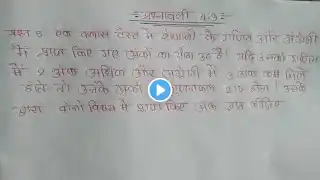 प्रश्नावली 4.3
प्रश्न 5 एक क्लास टेस्ट में शेफाली के गणित और अंग्रेजी
में प्राप्त किए गए अंकों का योग 30 है। यदि उसको गणित
में 2 अंक अधिक और अंग्रेजी में 3 अंक कम मिले
होते तो उनके अंको का गुणनफल 210 होता। उसके
द्वारा दोनों विषयों में प्राप्त किए अंक ज्ञात कीजिए